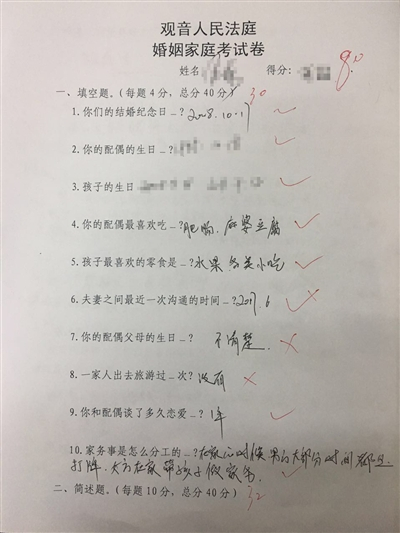 观音人民法庭
婚姻家庭考试卷
姓名 得分: 80
一、填空题。(每题4分，总分40分) 30
1.你们的结婚纪念日_? 2008.10.17
2.你的配偶的生日_?
3.孩子的生日
4.你的配偶最喜欢吃_? 肥肠、麻婆豆腐
5.孩子最喜欢的零食是_? 水果各类小吃
6.夫妻之间最近一次沟通的时间_? 2017.6
7.你的配偶父母的生日_? 不清楚
8.一家人出去旅游过_次? 没有
9.你和配偶谈了多久恋爱_? 1年
10.家务事是怎么分工的_? 在家的时候 男的大部分时间都
打牌、女方在家带孩子做家务
二、简述题。(每题10分，总分40分) 32